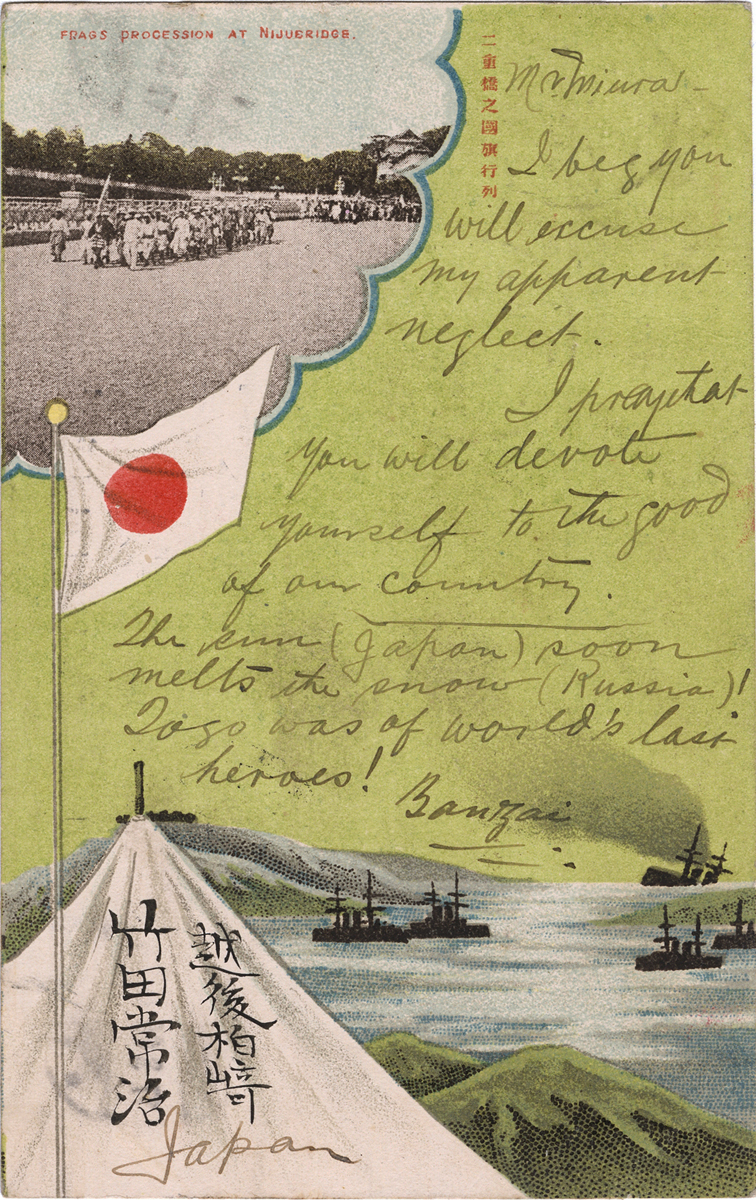 FRAGS PROCESSION AT NIJUBRIDGE.
二重橋之國旗行列
Mr. Miura –
I beg you
will excuse
my apparent
neglect.
I pray that
you will devote
yourself to the good
of our country.
The sun (Japan) soon
melts the snow (Russia)!
Togo was of world's last
heroes!
Banzai
越後柏崎
竹田常治
Japan